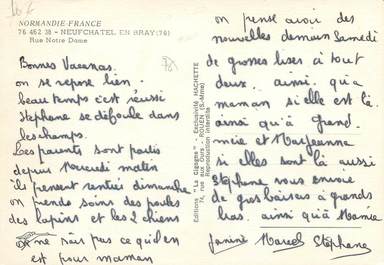 NORMANDIE-FRANCE
76 462 38 - NEUFCHATEL EN BRAY (76)
Rue Notre Dame
Bonnes Vacances.
on se repose bien.
beau temps c'est réussi
Stephane se défoule dans
les champs.
Les parents sont partis
depuis Mercredi matin
ils pensent rentrés dimanche
on prends soins des poules
des lapins et les 2 chiens
on ne sais pas ce qu'il en
est pour maman
Editions "La Cigogne" - Exclusivité HACHETTE
74, rue aux Ours - ROUEN (S.-Mme)
Reproduction interdite
on pense avoir des
nouvelles demain Samedi
de grosses bises à tout
deux. ainsi qu'a
maman si elle est là.
ainsi qu'à Grand
mère et Marjeanne
si elles sont là aussi
Stephane vous envoie
de gros baisers à grands
bras. ainsi qu'à Mamie
Janine Marcel Stéphane